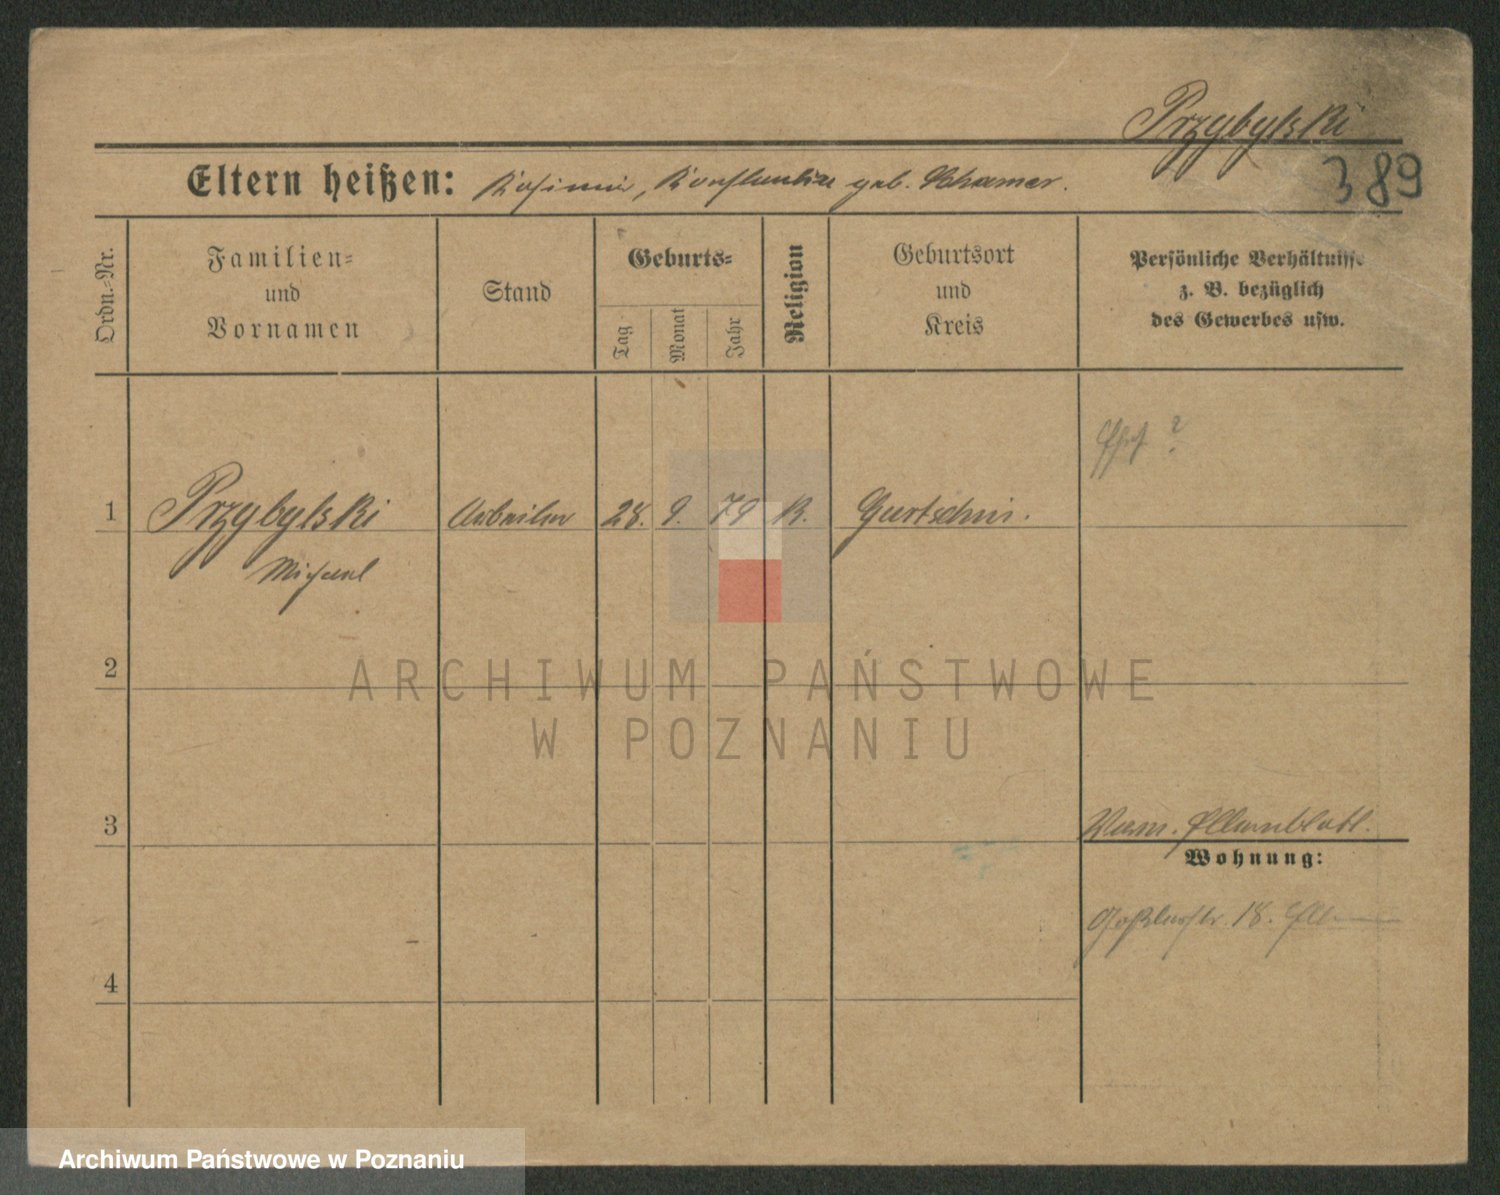 Przybylski
389
Eltern heißen: Kasimir, Konstantine geb. Schamer.
Ordn.-Nr.
Familien-
und
Vornamen
Stand
Geburts-
Tag
Monat
Jahr
Religion
Geburtsort
und
Kreis
Persönliche Verhältnisse
z. B. bezüglich
des Gewerbes usw.
1 Przybylski Arbeiter 28. 9. 79 K. Gurtschin.
Michael
2
3
Elternblatt.
Wohnung:
18.
4
ARCHIWUM PAŃSTWOWE
W POZNANIU
Archiwum Państwowe w Poznaniu